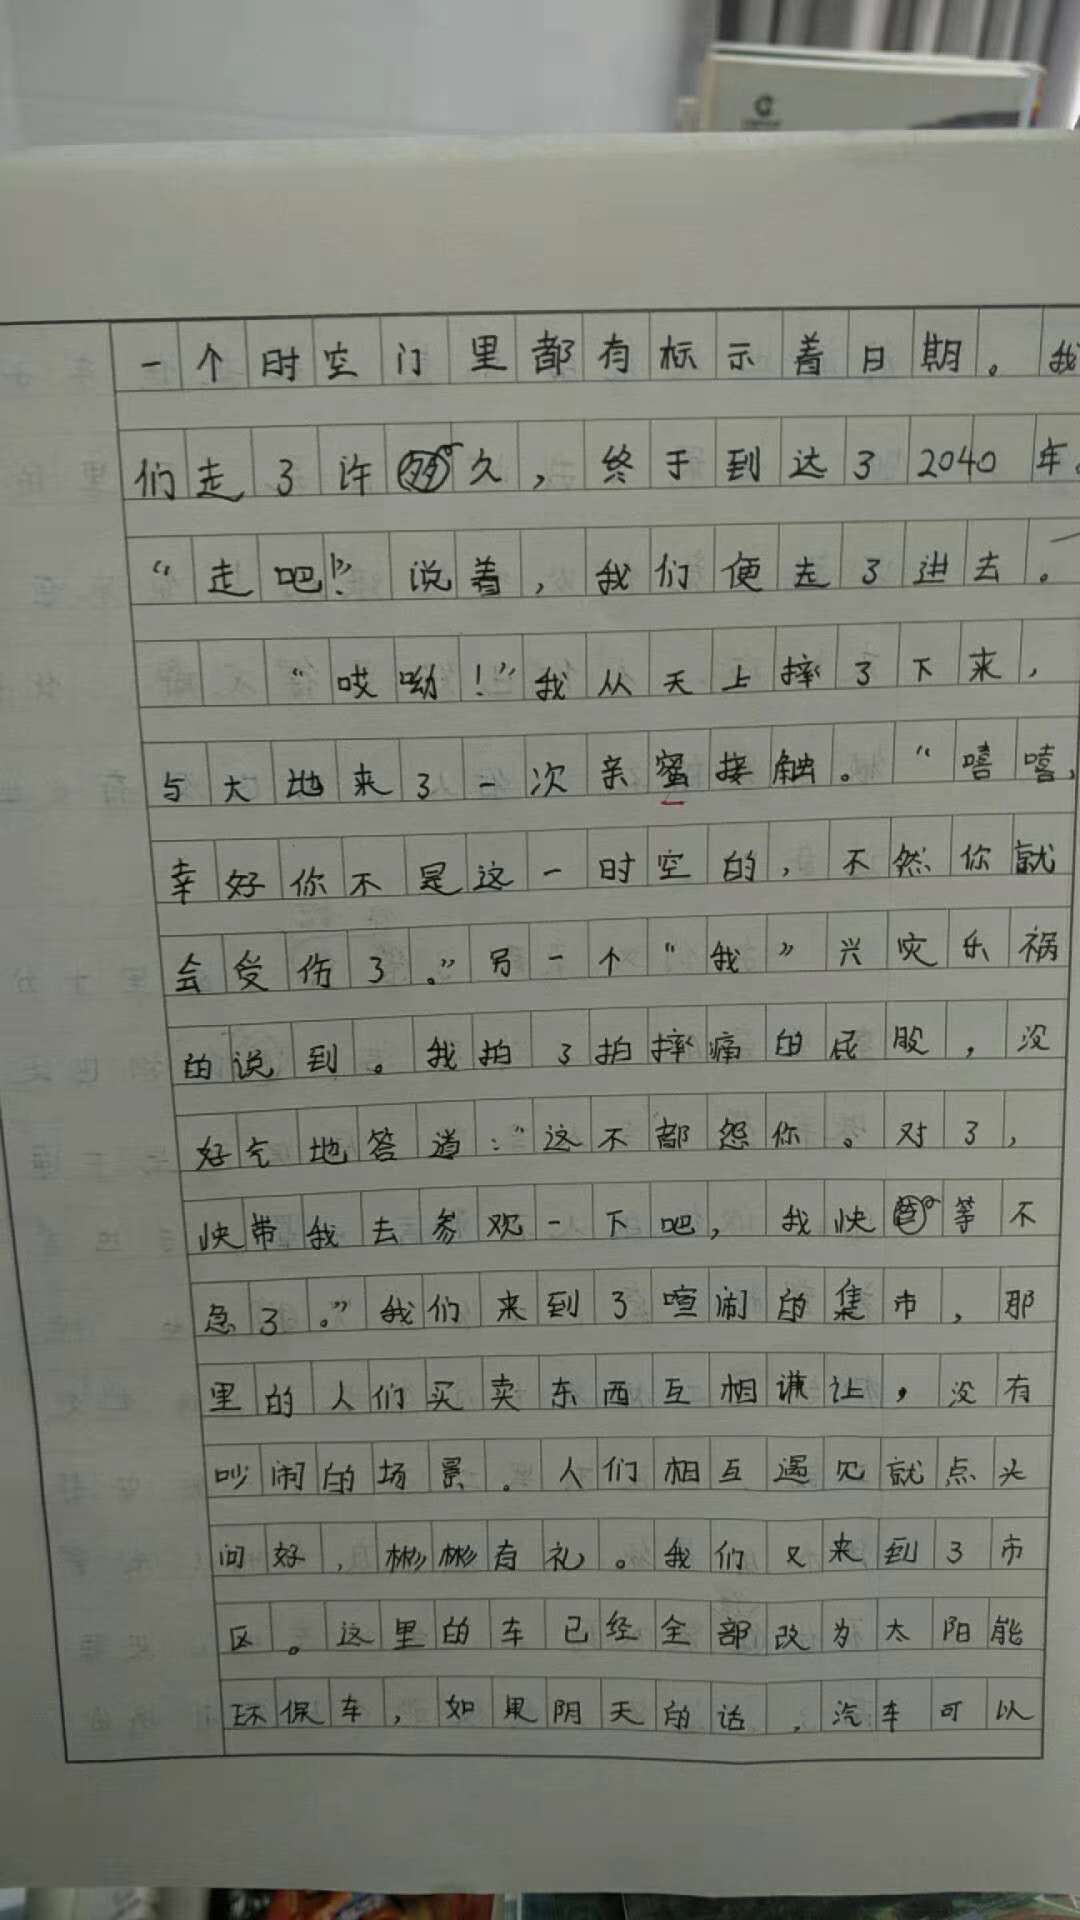 一个时空门里都有标示着日期。我
们走了许久，终于到达了2040年。
“走吧！”说着，我们便走了进去。
“哎呦！”我从天上摔了下来，
与大地来了一次亲蜜接触。“嘻嘻，
幸好你不是这一时空的，不然你就
会受伤了。”另一个“我”兴灾乐祸
的说到。我拍了拍摔痛的屁股，没
好气地答道：“这不都怨你。对了，
快带我去参观一下吧，我快等不
急了。”我们来到了喧闹的集市，那
里的人们买卖东西互相谦让，没有
吵闹的场景。人们相互遇见就点头
问好，彬彬有礼。我们又来到了市
区。这里的车已经全部改为太阳能
环保车，如果阴天的话，汽车可以